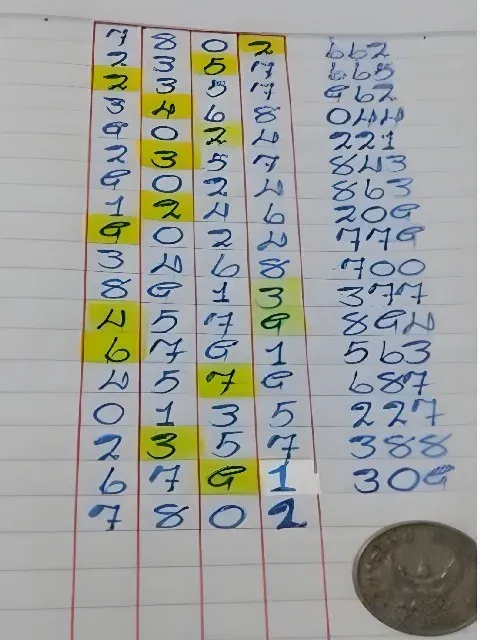 7 8 0 2 662
2 3 5 7 665
2 3 5 7 962
3 4 6 8 044
9 0 2 4 221
2 3 5 7 843
9 0 2 4 863
1 2 4 6 209
9 0 2 4 779
3 4 6 8 700
8 9 1 3 377
4 5 7 9 894
6 7 9 1 563
4 5 7 9 687
0 1 3 5 227
2 3 5 7 388
6 7 9 1 309
7 8 0 2